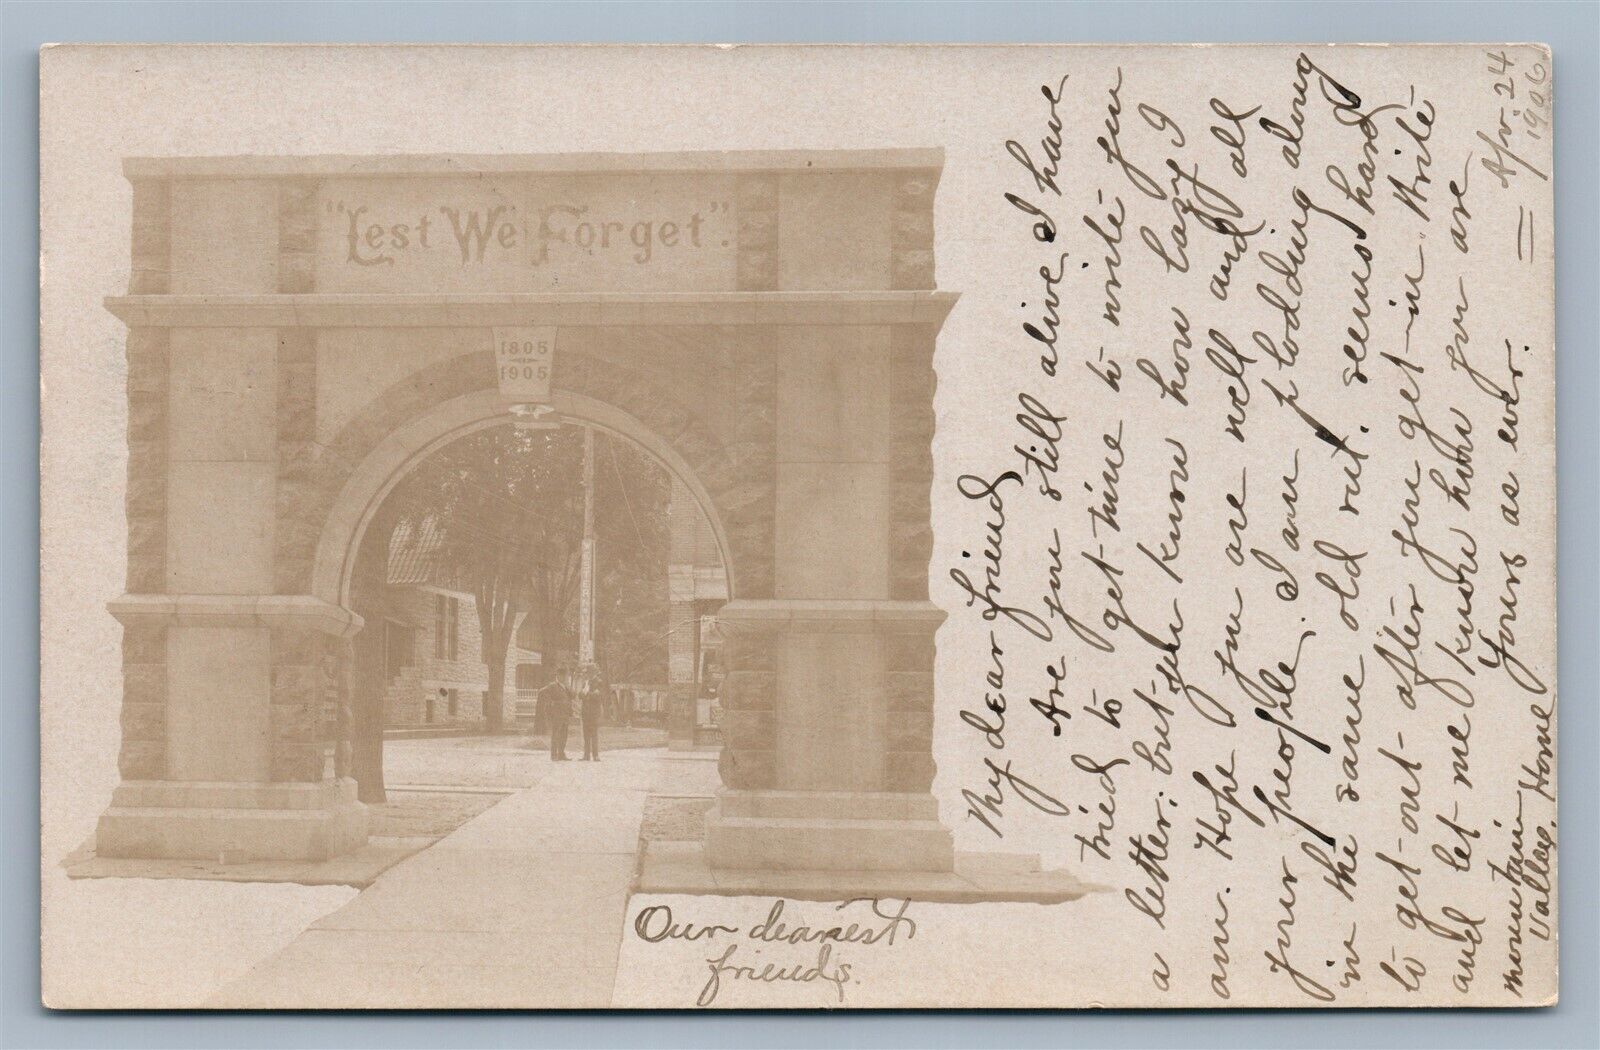 "Lest We Forget".
1805
1905
My dear friend
Are you still alive I have
tried to get time to write you
a letter, but you know how lazy I
am. Hope you are well and all
your people. I am plodding along
in the same old rut. seems hard
to get out after you get in write
and let me know how you are
Yours as ever.
Mountain
Valley Home
= Apr. 24
1906
Our dearest
friends.